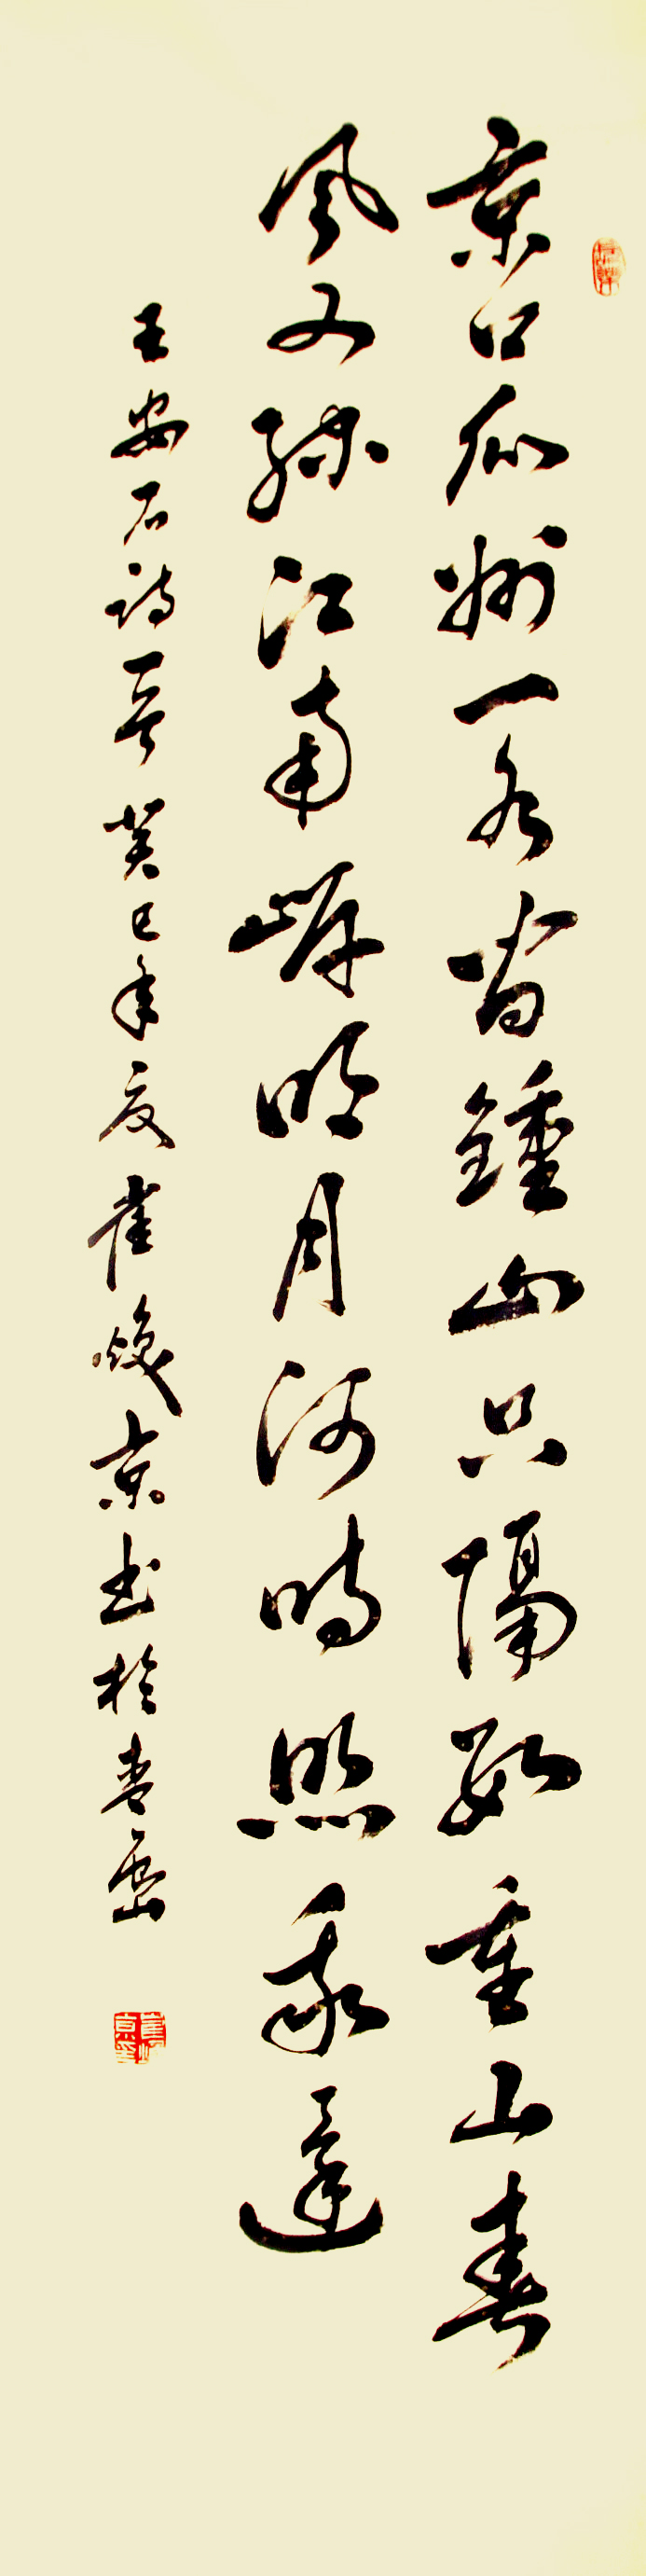 京口瓜州一水间鍾山只隔數重山春
風又綠江南岸明月何時照我還
王安石詩一首癸巳年夏崔焕京书於春